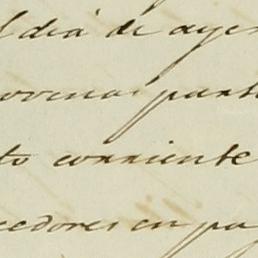 l dia de aye
ovena part
to corriente
cedores en pa